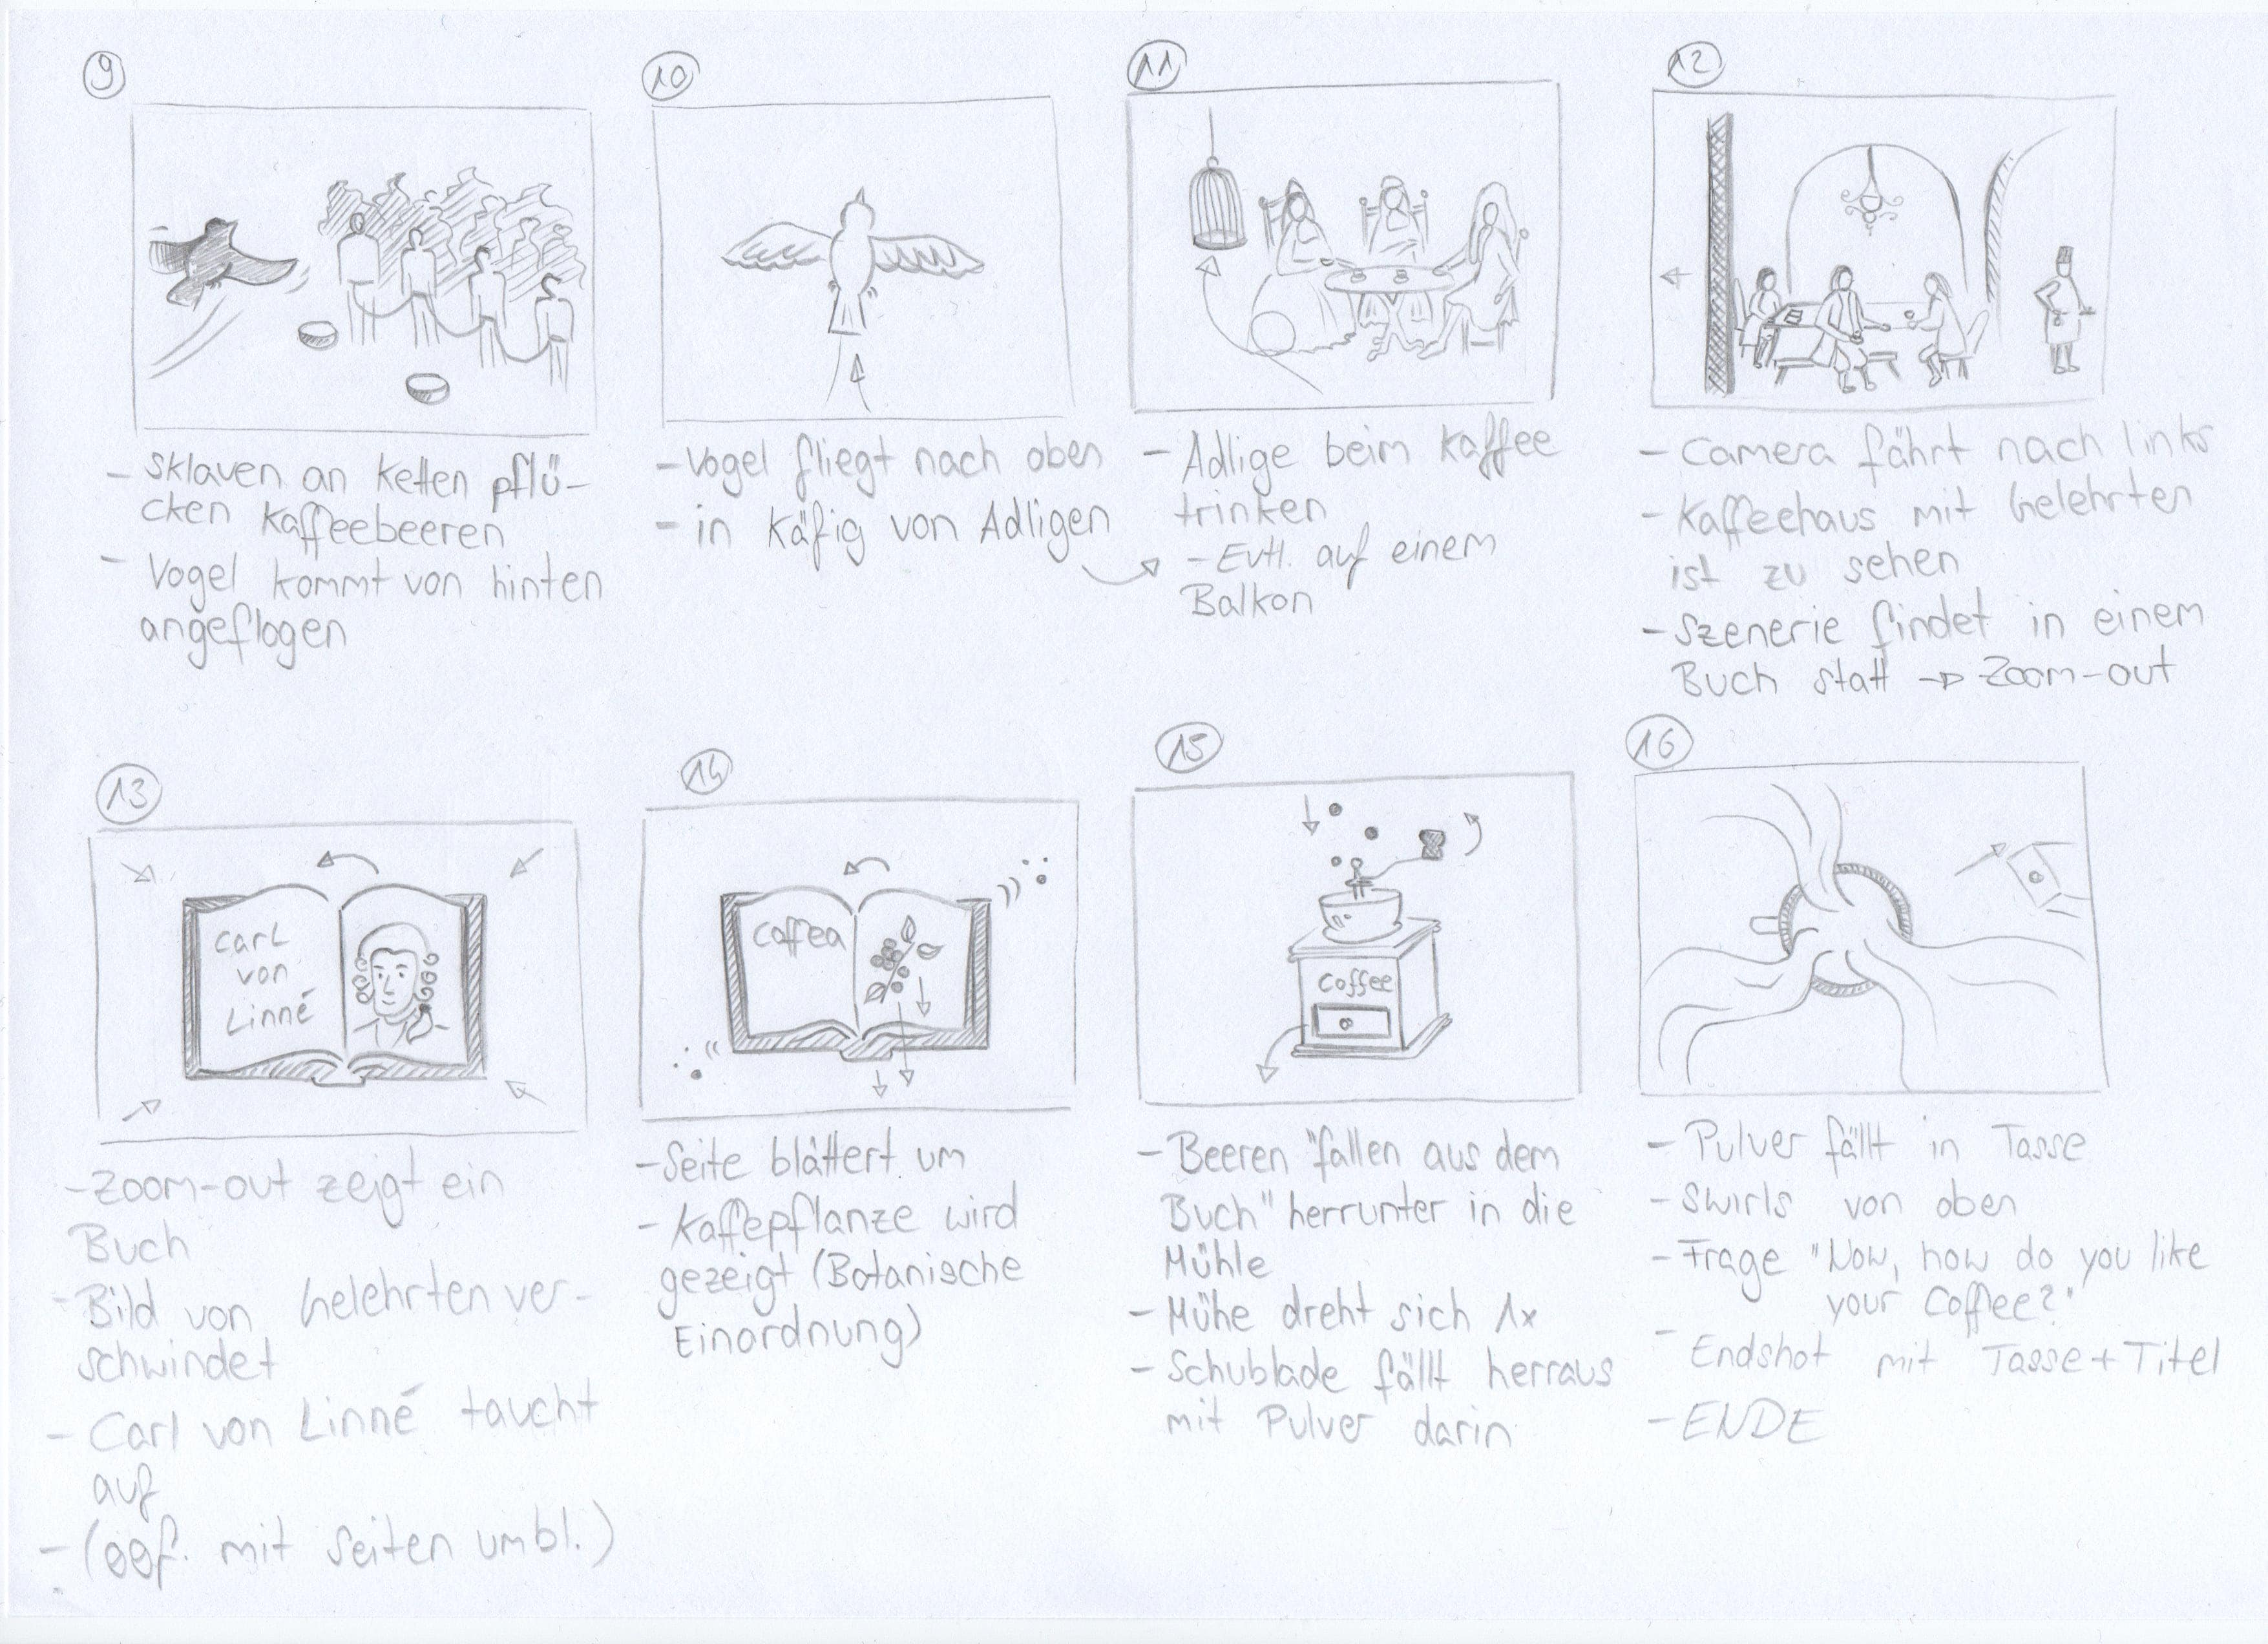 9
- Sklaven an Ketten pflü-
cken Kaffeebeeren
- Vogel kommt von hinten
angeflogen
10
- Vogel fliegt nach oben
- in Käfig von Adligen
11
- Adlige beim Kaffee
trinken
- Evtl. auf einem
Balkon
12
- Camera fährt nach links
- Kaffeehaus mit Gelehrten
ist zu sehen
- Szenerie findet in einem
Buch statt → Zoom-out
13
Carl
von
Linné
- Zoom-out zeigt ein
Buch
- Bild von Gelehrten ver-
schwindet
- Carl von Linné taucht
auf
- (ggf. mit Seiten umbl.)
14
Coffea
- Seite blättert um
- Kaffepflanze wird
gezeigt (Botanische
Einordnung)
15
Coffee
- Beeren "fallen aus dem
Buch" herrunter in die
Mühle
- Mühe dreht sich 1x
- Schublade fällt herraus
mit Pulver darin
16
- Pulver fällt in Tasse
- Swirls von oben
- Frage "Now, how do you like
your Coffee?"
- Endshot mit Tasse + Titel
- ENDE